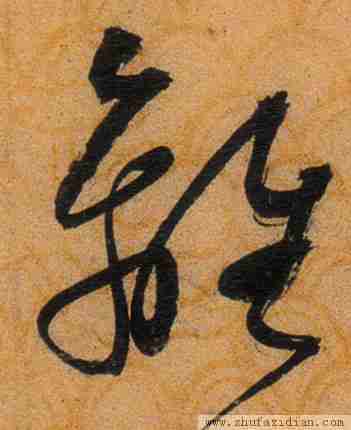 離
www.zhufazidian.com